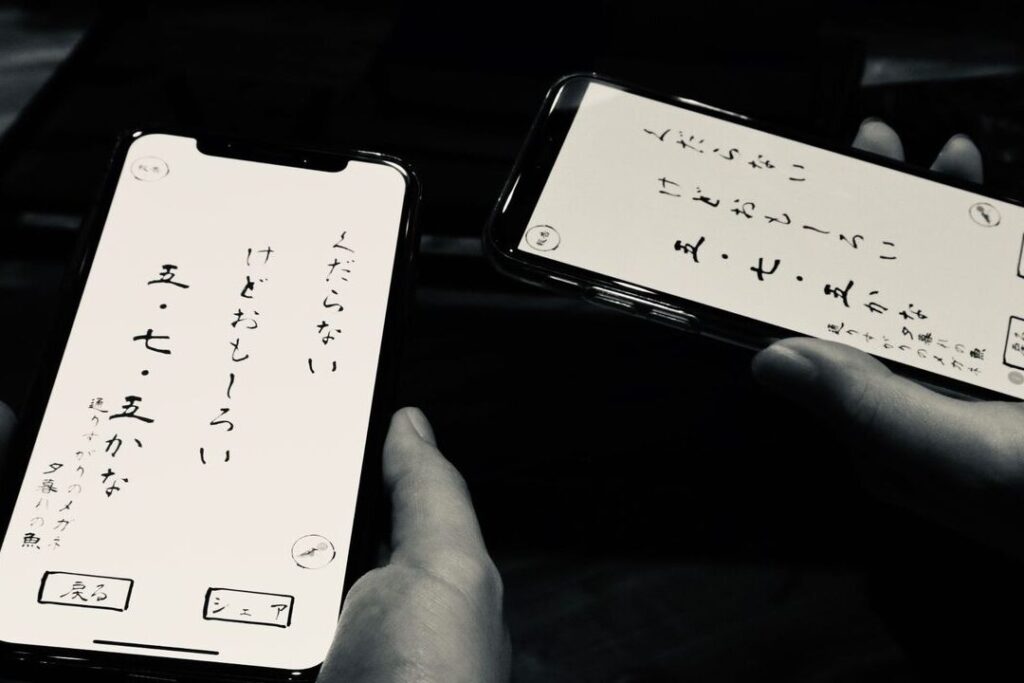 くだらない
けどおもしろい
五・七・五かな
通りすがりのメガネ
夕暮れの魚
戻る
シェア
くだらない
けどおもしろい
五・七・五かな
夕暮れの魚
通りすがりのメガネ